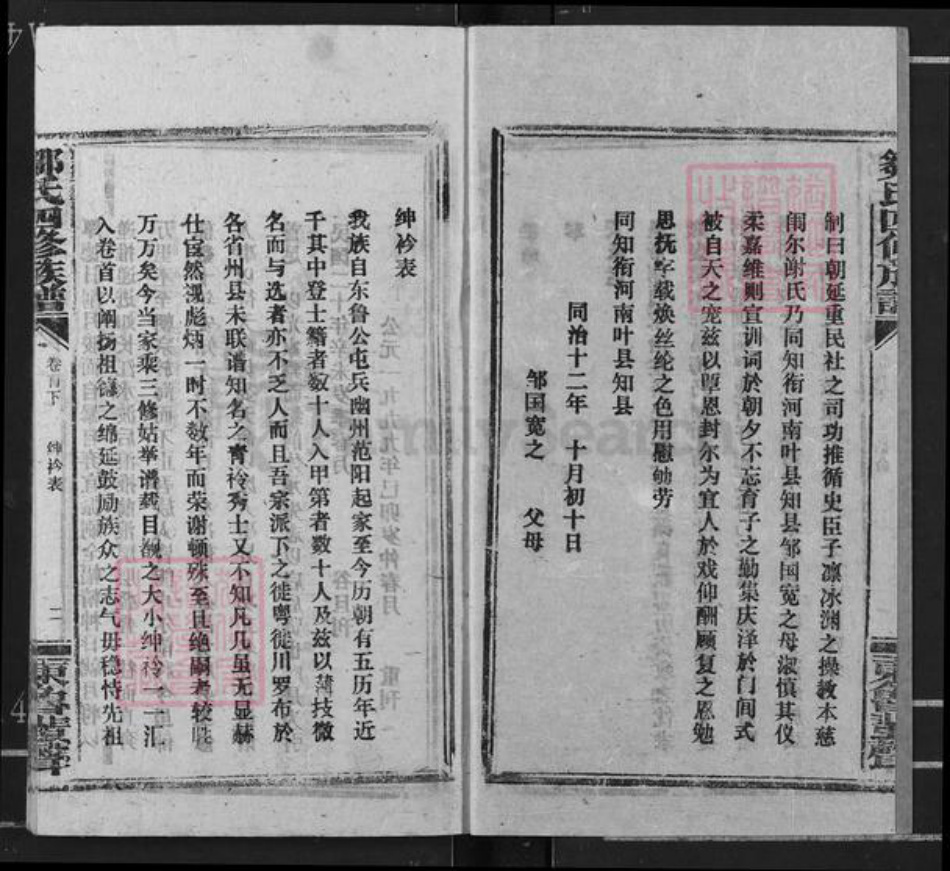 制曰朝延重民社之司功推循史臣子凛冰渊之操教本慈
闱尔谢氏乃同知衔河南叶县知县邹国宽之母淑慎其仪
柔嘉维则宣训词於朝夕不忘育子之勤集庆泽於门闾式
被自天之宠兹以覃恩封尔为宜人於戏仰酬顾复之恩勉
思抚字载焕丝纶之色用慰劬劳
同知衔河南叶县知县
同治十二年 十月初十日
邹国宽之 父母
绅衿表
我族自东鲁公屯兵幽州范阳起家至今历朝有五历年近
千其中登士籍者数十人入甲第者数十人及兹以薄技微
名而与选者亦不乏人而且吾宗派下之徙粤徙川罗布於
各省州县未联谱知名之青衿秀士又不知凡几虽无显赫
仕宦然彪炳一时不数年而荣谢顿殊至且绝嗣者较
万万矣今当家乘三修姑举谱载目觌之大小绅衿一一汇
入卷首以阐扬祖德之绵延鼓励族众之志气毋稳恃先祖
邹氏四修族谱
卷首下 绅衿表
二